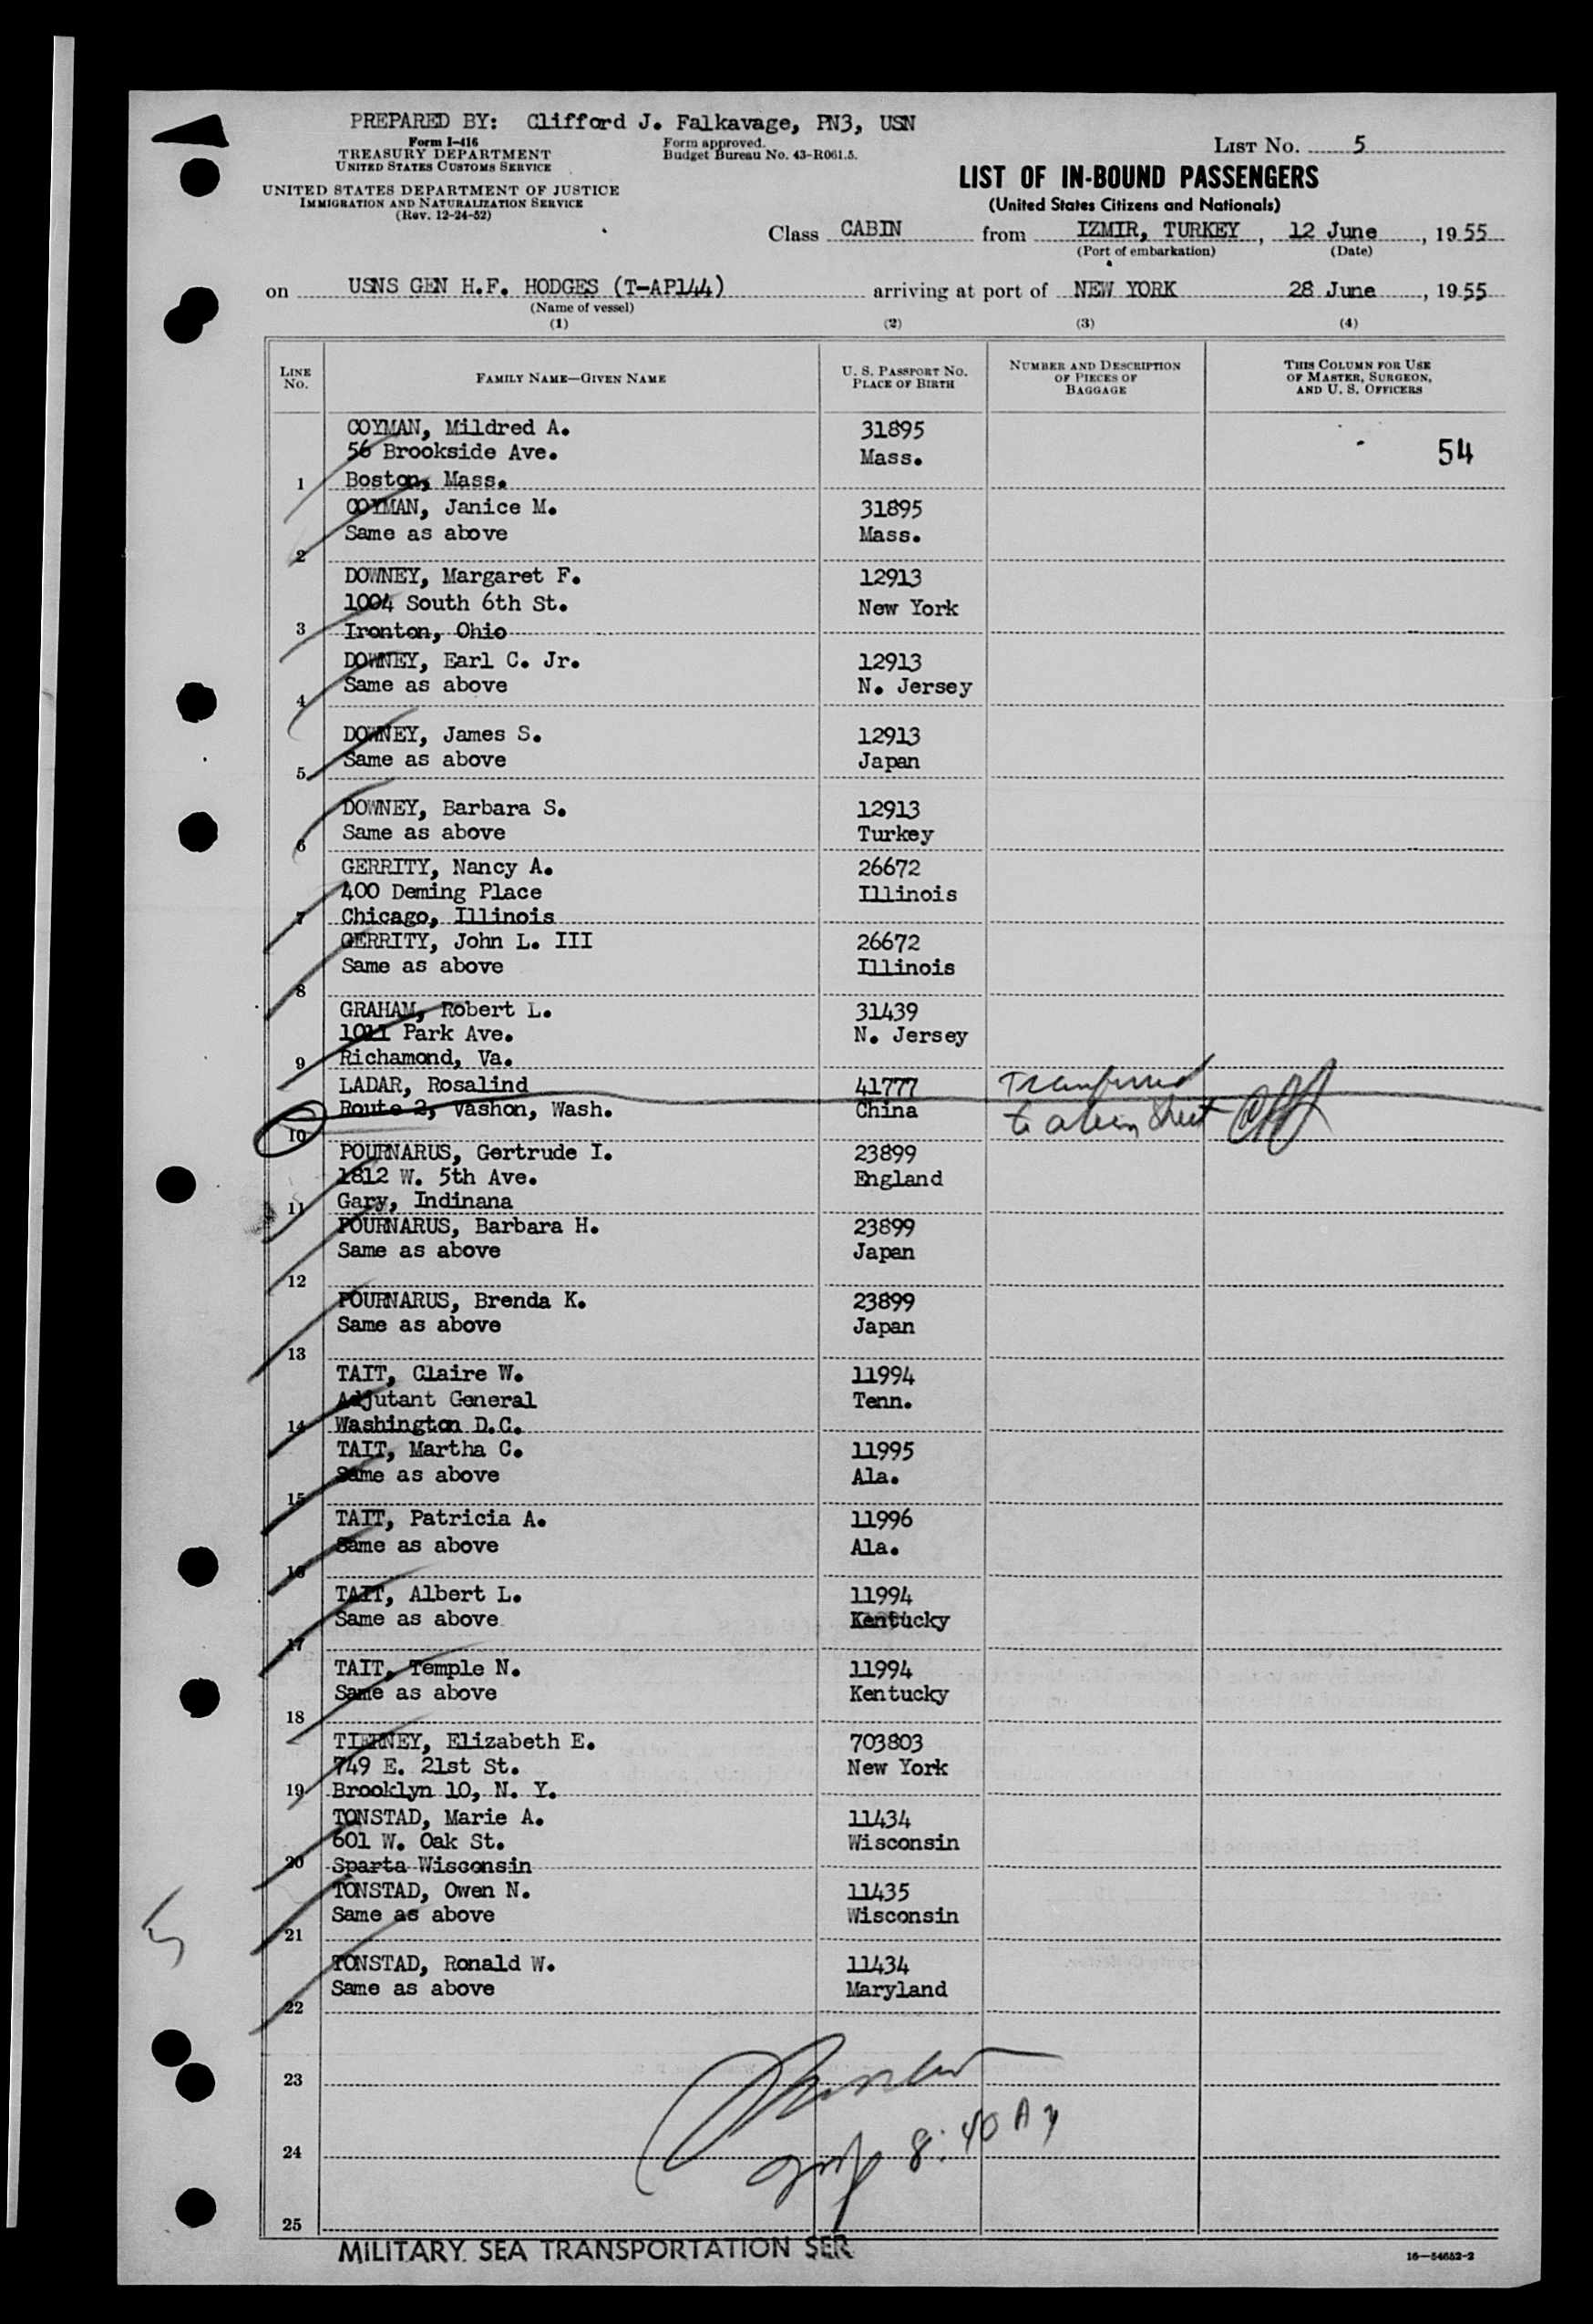 PREPARED BY: Clifford J. Falkavage, PN3, USN
Form I-416
TREASURY DEPARTMENT
UNITED STATES CUSTOMS SERVICE
Form approved.
Budget Bureau No. 43-R061.5.
LIST NO. 5
UNITED STATES DEPARTMENT OF JUSTICE
IMMIGRATION AND NATURALIZATION SERVICE
(Rev. 12-24-52)
LIST OF IN-BOUND PASSENGERS
(United States Citizens and Nationals)
Class CABIN from IZMIR, TURKEY, 12 June, 1955
(Port of embarkation) (Date)
on USNS GEN H.F. HODGES (T-AP144) arriving at port of NEW YORK 28 June, 1955
(Name of vessel)
(1) (2) (3) (4)
LINE NO. FAMILY NAME—GIVEN NAME U. S. PASSPORT NO. PLACE OF BIRTH NUMBER AND DESCRIPTION OF PIECES OF BAGGAGE THIS COLUMN FOR USE OF MASTER, SURGEON, AND U. S. OFFICERS
COYMAN, Mildred A. 31895
56 Brookside Ave. Mass. 54
1 Boston, Mass.
COYMAN, Janice M. 31895
Same as above Mass.
2
DOWNEY, Margaret F. 12913
1004 South 6th St. New York
3 Ironton, Ohio
DOWNEY, Earl C. Jr. 12913
Same as above N. Jersey
4
DOWNEY, James S. 12913
Same as above Japan
5
DOWNEY, Barbara S. 12913
Same as above Turkey
6
GERRITY, Nancy A. 26672
400 Deming Place Illinois
7 Chicago, Illinois
GERRITY, John L. III 26672
Same as above Illinois
8
GRAHAM, Robert L. 31439
1011 Park Ave. N. Jersey
9 Richamond, Va.
LADAR, Rosalind 41777 Transferred
Route 2, Vashon, Wash. China to alien sheet
10
POURNARUS, Gertrude I. 23899
1812 W. 5th Ave. England
11 Gary, Indinana
POURNARUS, Barbara H. 23899
Same as above Japan
12
POURNARUS, Brenda K. 23899
Same as above Japan
13
TAIT, Claire W. 11994
Adjutant General Tenn.
14 Washington D.C.
TAIT, Martha C. 11995
Same as above Ala.
15
TAIT, Patricia A. 11996
Same as above Ala.
16
TAIT, Albert L. 11994
Same as above Kentucky
17
TAIT, Temple N. 11994
Same as above Kentucky
18
TIERNEY, Elizabeth E. 703803
749 E. 21st St. New York
19 Brooklyn 10, N. Y.
TONSTAD, Marie A. 11434
601 W. Oak St. Wisconsin
20 Sparta Wisconsin
TONSTAD, Owen N. 11435
Same as above Wisconsin
21
TONSTAD, Ronald W. 11434
Same as above Maryland
22
5
23
8:40 A
24
25
MILITARY SEA TRANSPORTATION SER
16—54652-2